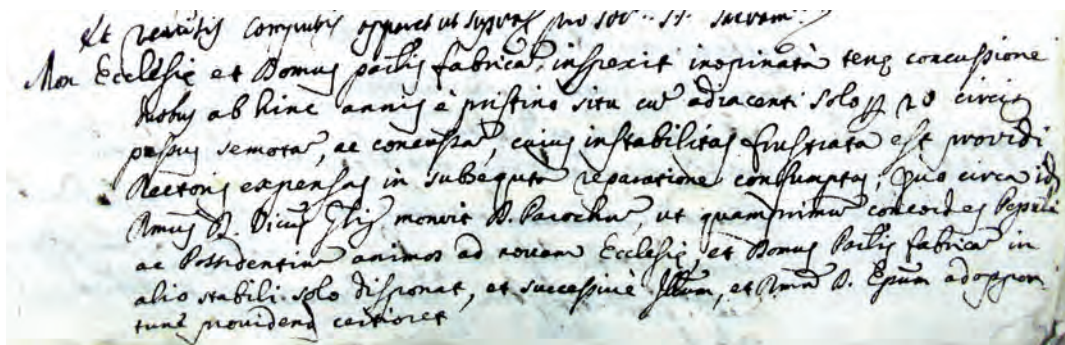 Et computis apparet ut supra pro
Mox Ecclesię et Domus pãlis fabricã, inspexit inopinatã concussione
duobus ab hinc annis è pristino situ cũ adiacenti solo 20 circit
passus semotã, ac concussã, cuius instabilitas frustrata est providi
Rectoris expensas in subsequta reparatione consumptas; Quo circa id
Rmus D. Vicus Glis monuit D. Parochũ, ut quamprimũ concordes Populi
ac Possidentiũ animos ad novam Ecclesię, et Domus Pãlis fabricã in
alio stabili solo disponat, et successivè Illum, et Rmũ D. Epum ad oppor
tunè providend certioret